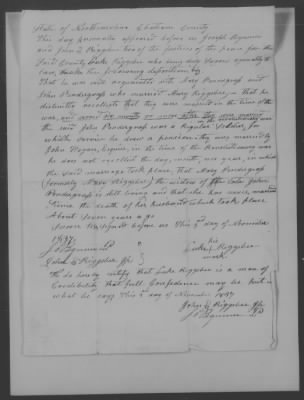 State of North Carolina Chatham County
This day personally appeared before us Joseph Bynum
and John Q Riggsbee two of the Justices of the peace for the
Said County Luke Riggsbee who being duly Sworn according to
Law, makes the following deposition
That he was well acquainted with Mary Pendergrass and
John Pendergrass who married Mary Riggsbee, that he
distinctly recollects that they were married in the time of the
war,
the said John Pendergrass was a Regular Soldier, for
which service he drew a pension they were married by
John Hogan, Esquire, in the time of the Revolutionary war
he does not recollect the day, month, nor year, in which
the said marriage took place, that Mary Pendergrass
(formerly Mary Riggsbee) the widow of the late John
Pendergrass is still living and that she has never married
Since the death of her husband which took place
About Seven years ago
Sworn & Subscribed before us This 2d day of November
1837
J Bynum JP
his
Luke Riggsbee
mark
John Q Riggsbee JP
We do hereby certify that Luke Riggsbee is a man of
Credibility that full Confidence may be put in
what he says This 2d day of November 1837
John Q Riggsbee JP
J Bynum JP